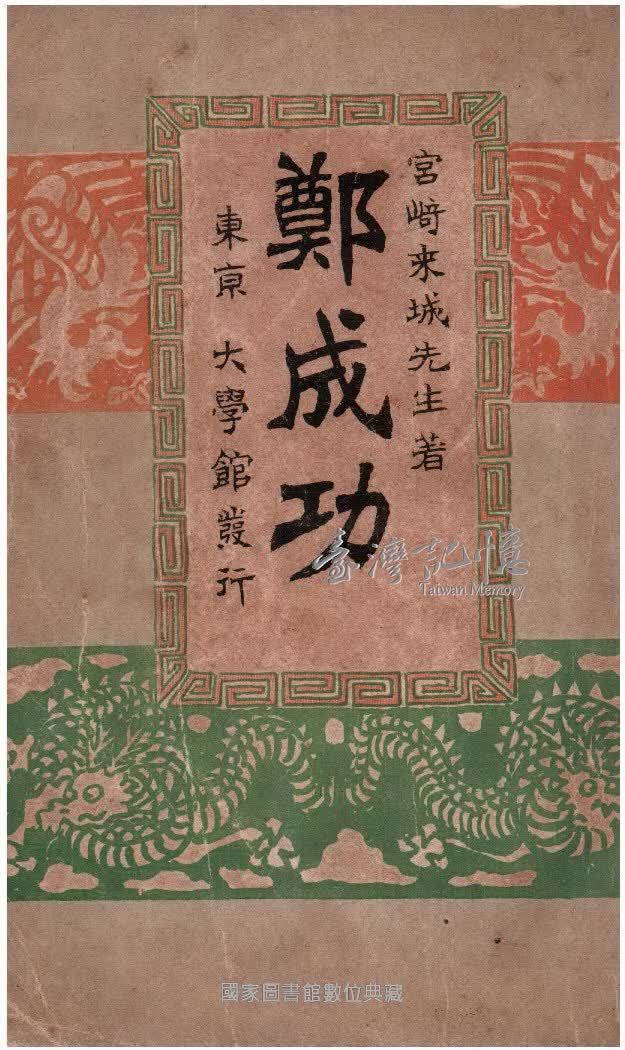 宮﨑来城先生著
鄭成功
東京 大學館發行
臺灣記憶
Taiwan Memory
國家圖書館數位典藏